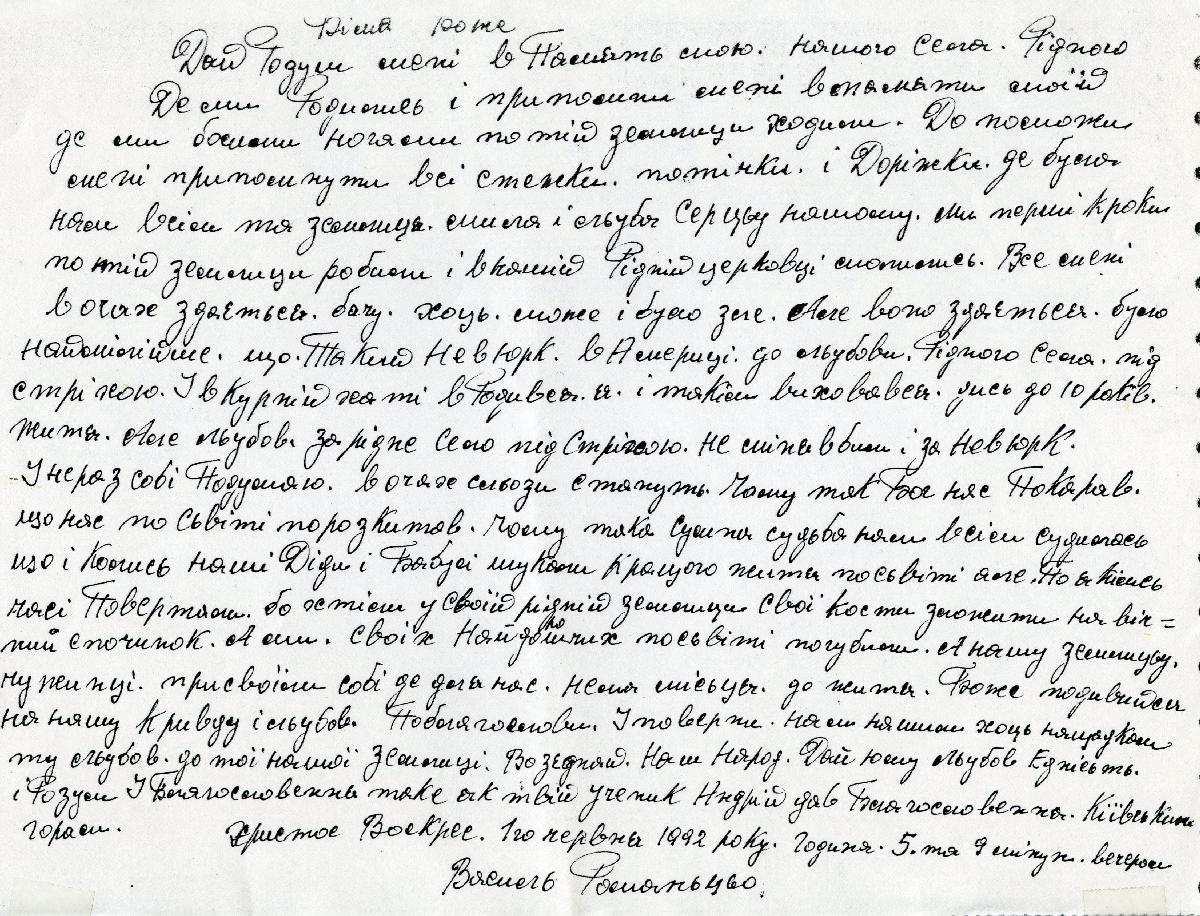 Боже
Дай Розум мені в Память мою. нашого Села. Рідного
Де ми Родились і припомни мені впамяти моїй
де ми босими ногами по тій землици ходили. До поможи
мені припомнути всі стежки. потічки. і Доріжки. де була
нам всім та землиця. мила і люба Серцьу нашому. ми перші кроки
по тій землици робили і внашій Рідній церковці молились. Все мені
в очах здаєтьсея. бачу. хоць. може і було зле. Але воно здаєтьсея. було
наймилійше. що. Такий Невюрк. в Америці. до льубови. Рідного Села. під
стріхою. І вкурній хаті вРодивсея. я. і таким виховавсея. дись до 10 років.
життя. Але льубов. за рідне Село під Стріхою. не мінявбим і за Невюрк.
І нераз собі Подумаю. в очах сльози стануть. Чому так Бог нас Покарав.
що нас по сьвіті порозкитав. Чому така сумна судьба нам всім судилась
що і колись наші Діди і Бабусі шукали кращого житя посьвіті але. По якімсь
часі Повертали. бо хтіли у своїй рідній землици свої кости зложити на віч=
ний спочинок. А ми. своїх Найдорщих посьвіті погубили. А нашу земльицу.
чужинці. присвоїли собі де для нас. нема місьця. до житя. Боже подивийсея
на нашу кривду і льубов. Поблагослови. І поверни. нам нашим хоць нащадкам
ту льубов. до тої нашої землиці. Возєднай. Наш Народ. Дай йому льубов Єдність.
і Розум І Благословенна таке як твій ученик Андрій дав Благословенна. Київським
горам. Христос Воскрес. 1го червня 1992 року. година. 5. та 9 мінут. вечером
Василь Романьцьо.